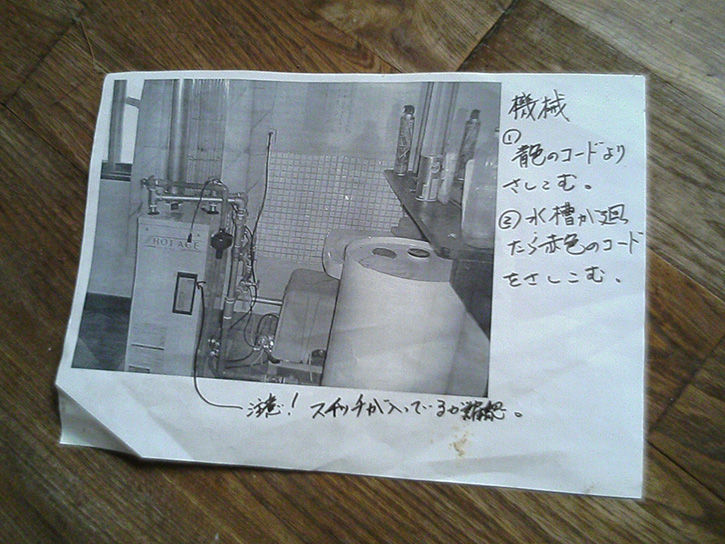 機械
①
青色のコードより
さしこむ。
②水槽が廻
たら赤色のコード
をさしこむ。
HOTAGE
注意! スイッチが入っているか確認。